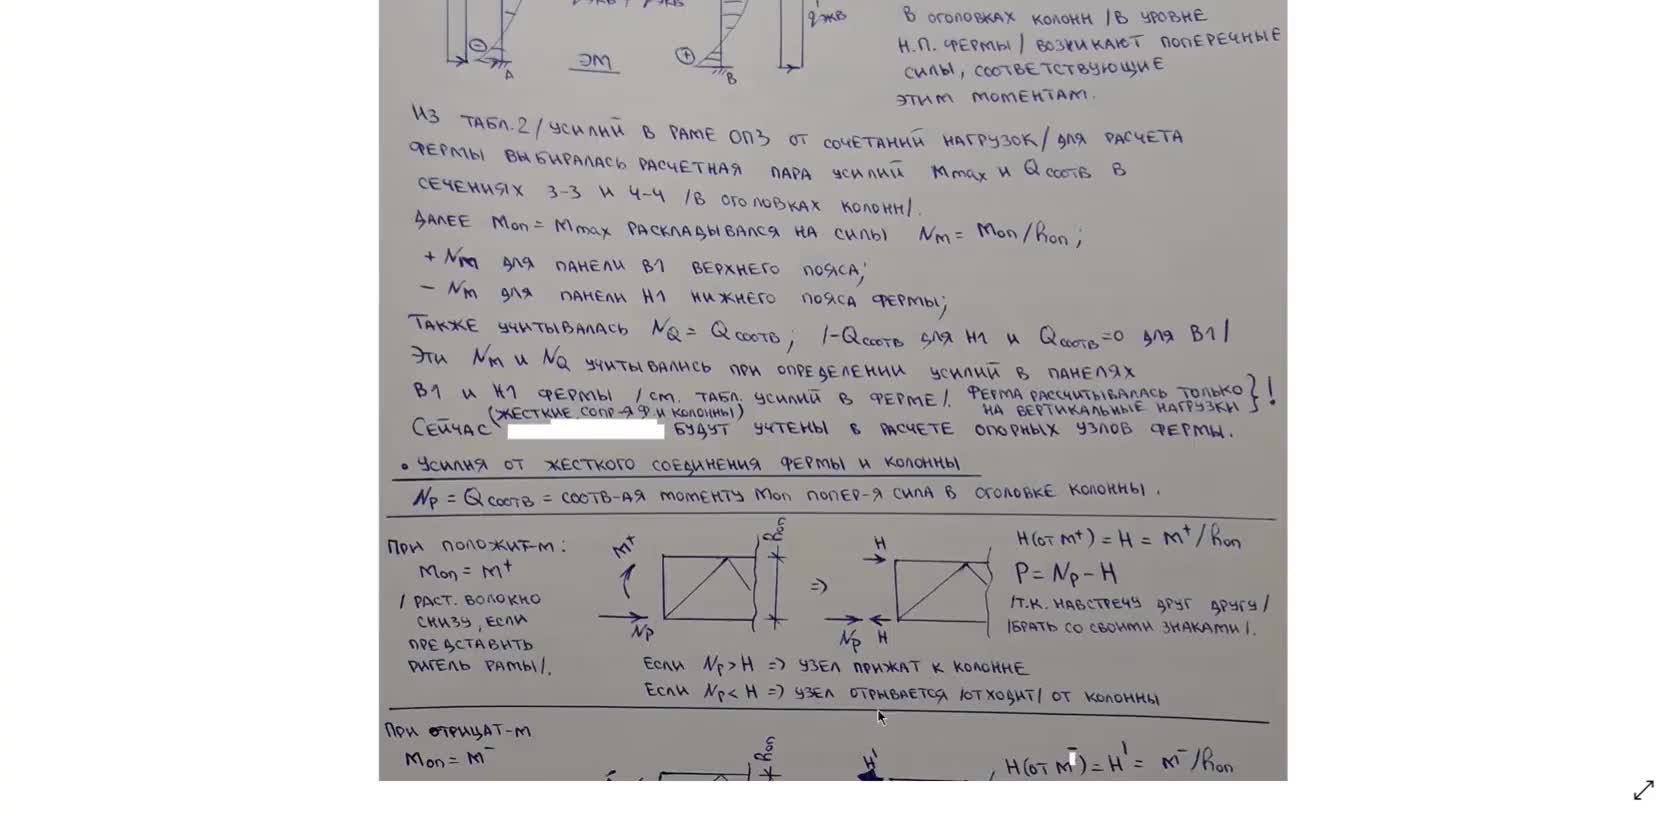 qжв
В ОГОЛОВКАХ КОЛОНН /В УРОВНЕ
Н.П. ФЕРМЫ/ ВОЗНИКАЮТ ПОПЕРЕЧНЫЕ
СИЛЫ, СООТВЕТСТВУЮЩИЕ
ЭТИМ МОМЕНТАМ.
⊖ A ЭМ ⊕ B
ИЗ ТАБЛ.2 /УСИЛИЙ В РАМЕ ОПЗ ОТ СОЧЕТАНИЙ НАГРУЗОК/ ДЛЯ РАСЧЕТА
ФЕРМЫ ВЫБИРАЛАСЬ РАСЧЕТНАЯ ПАРА УСИЛИЙ Mmax И Qсоотв В
СЕЧЕНИЯХ 3-3 И 4-4 /В ОГОЛОВКАХ КОЛОНН/.
ДАЛЕЕ Mоп = Mmax РАСКЛАДЫВАЛСЯ НА СИЛЫ Nм = Mоп/hоп;
+ Nм ДЛЯ ПАНЕЛИ В1 ВЕРХНЕГО ПОЯСА;
− Nм ДЛЯ ПАНЕЛИ Н1 НИЖНЕГО ПОЯСА ФЕРМЫ;
ТАКЖЕ УЧИТЫВАЛАСЬ NQ = Qсоотв; /-Qсоотв ДЛЯ Н1 И Qсоотв=0 ДЛЯ В1/
ЭТИ Nм И NQ УЧИТЫВАЛИСЬ ПРИ ОПРЕДЕЛЕНИИ УСИЛИЙ В ПАНЕЛЯХ
В1 И Н1 ФЕРМЫ /СМ. ТАБЛ. УСИЛИЙ В ФЕРМЕ/. ФЕРМА РАССЧИТЫВАЛАСЬ ТОЛЬКО
НА ВЕРТИКАЛЬНЫЕ НАГРУЗКИ } !
(ЖЕСТКИЕ СОПР-Я Ф. И КОЛОННЫ)
СЕЙЧАС БУДУТ УЧТЕНЫ В РАСЧЕТЕ ОПОРНЫХ УЗЛОВ ФЕРМЫ.
• УСИЛИЯ ОТ ЖЕСТКОГО СОЕДИНЕНИЯ ФЕРМЫ И КОЛОННЫ
Np = Qсоотв = СООТВ-АЯ МОМЕНТУ Mоп ПОПЕР-Я СИЛА В ОГОЛОВКЕ КОЛОННЫ.
ПРИ ПОЛОЖИТ-М:
Mоп = M⁺
/РАСТ. ВОЛОКНО
СНИЗУ, ЕСЛИ
ПРЕДСТАВИТЬ
РИГЕЛЬ РАМЫ/.
M⁺ hоп => H
Np Np H
H(от M⁺) = H = M⁺/hоп
P = Np − H
/Т.К. НАВСТРЕЧУ ДРУГ ДРУГУ/
/БРАТЬ СО СВОИМИ ЗНАКАМИ/.
ЕСЛИ Np > H => УЗЕЛ ПРИЖАТ К КОЛОННЕ
ЕСЛИ Np < H => УЗЕЛ ОТРЫВАЕТСЯ /ОТХОДИТ/ ОТ КОЛОННЫ
ПРИ ОТРИЦАТ-М
Mоп = M⁻
hоп H'
H(от M⁻) = H' = M⁻/hоп